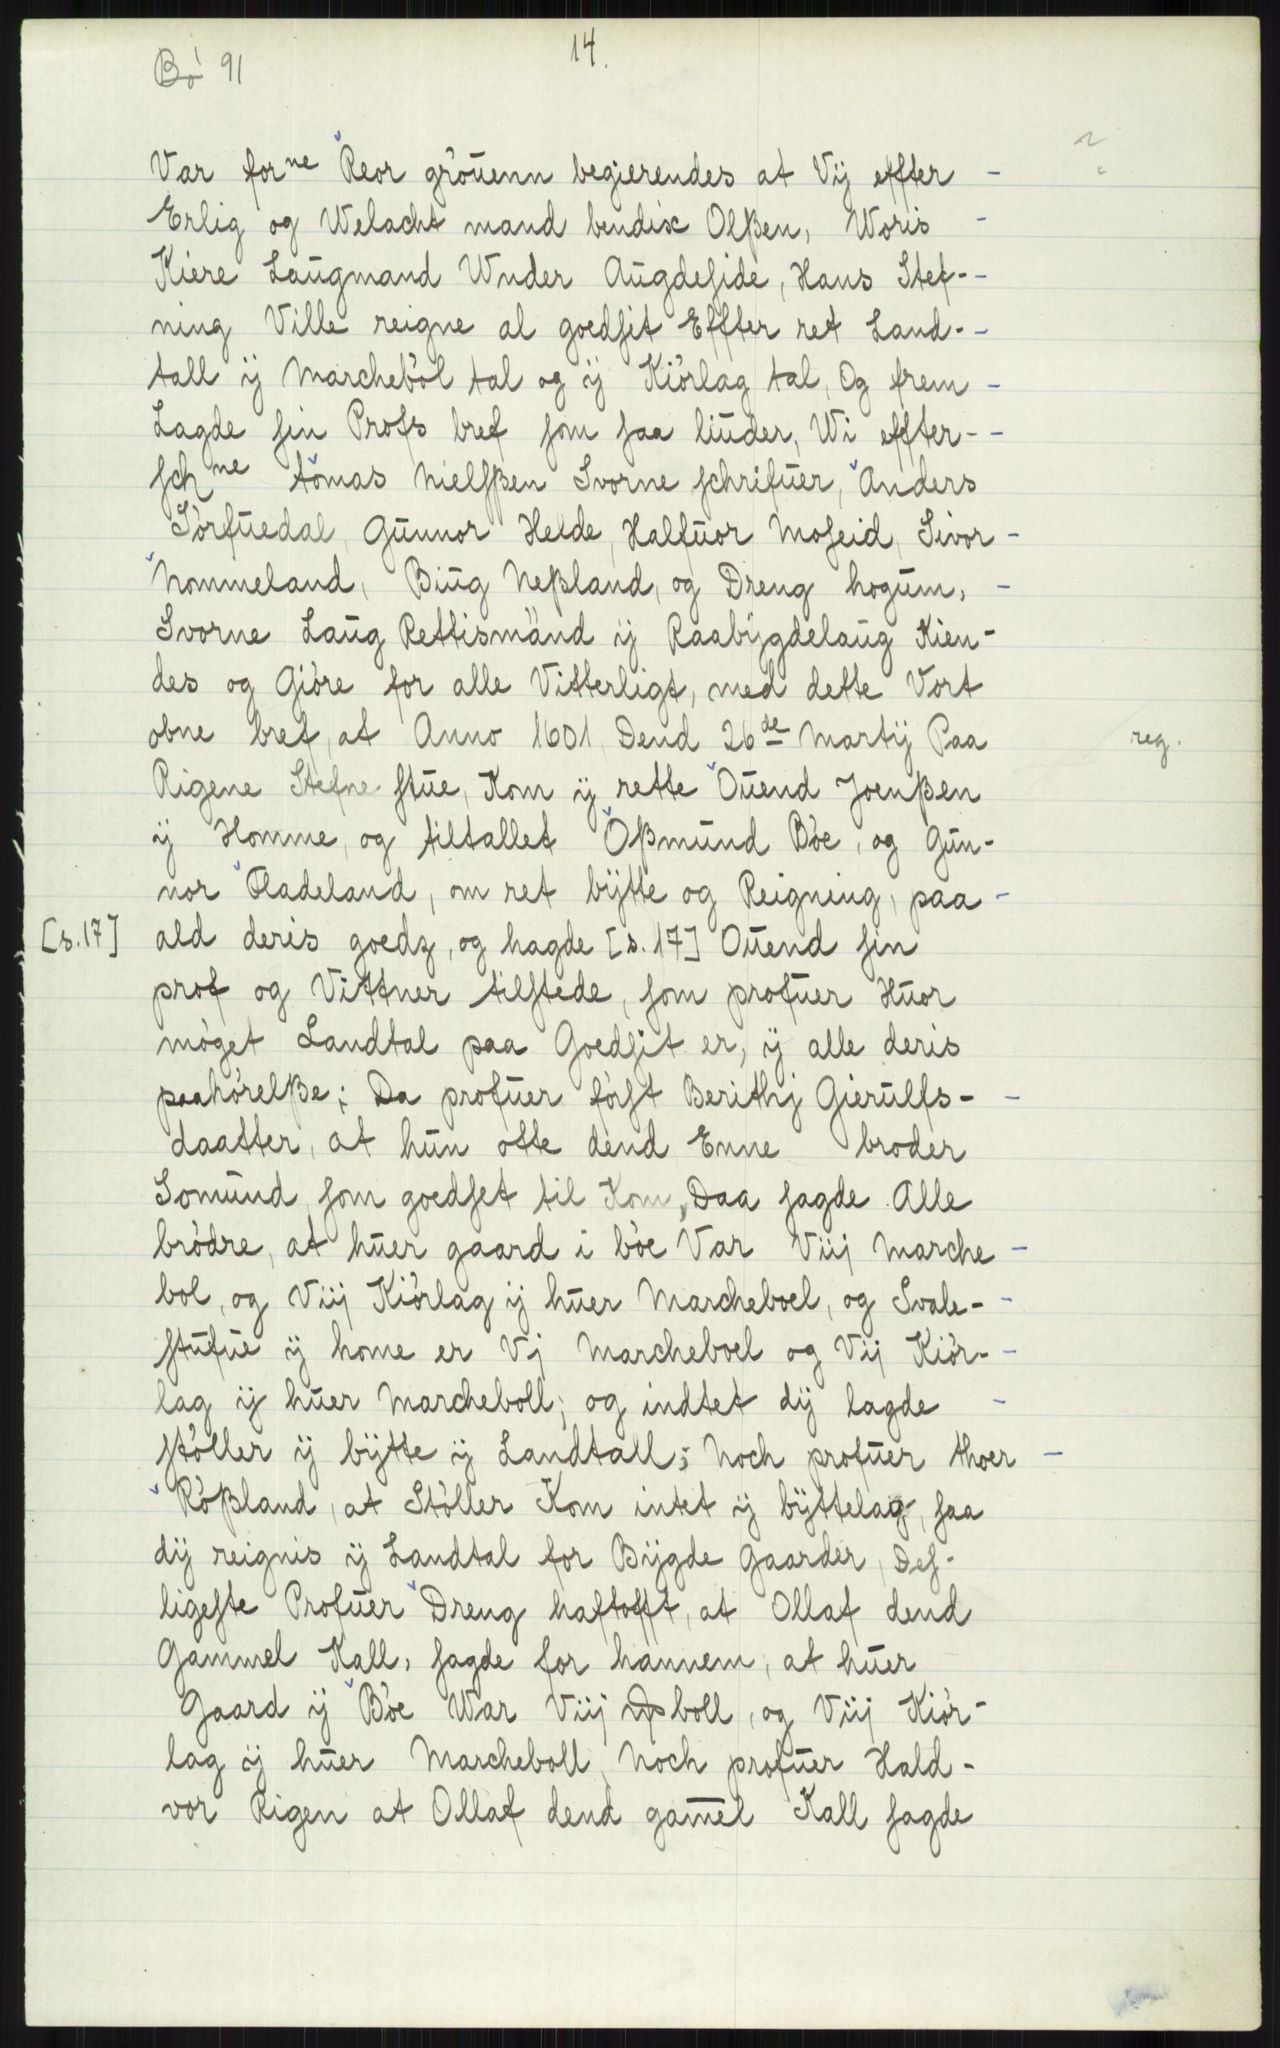 Bö 91
14.
Var for<sup>ne</sup> Reor gröuenn begierendes at Vij effter -
Erlig og Welacht mand bendix Olßen, Woris -
Kiere Laugmand Wnder Augdeside, Hans Stef- -
ning Ville reigne al goedsit Effter ret Land- -
tall ij Marcheböl tal og ij Kiörlag tal, Og frem -
Lagde sin Profs bref som saa liuder, Wi effter- -
sch<sup>ne</sup> tomas nielsßen Svorne schrifuer, Anders
Sörfuedal, Gunnor Helde, Halfuor Moseid, Sivor -
Nommeland, Biug Neßland, og Dreng hogum, -
Svorne Laug Rettismänd ij Raabygdelaug Kien-
des og Giöre for alle Vitterligt, med dette Vort
obne bref, at Anno 1601, Dend 26<sup>de</sup> Martij Paa
reg.
Rigene Stefne stue, Kom ij rette Ouend Joenßen
ij Homme, og tiltallet Oßmund Böe, og Gun-
nor Fladeland, om ret bÿtte og Reigning, paa -
[s.17] ald deris goedz, og hagde [s.17] Ouend sin
prof og Vittner tilstede, som profuer Huor
möget Landtal paa Goedsit er, ij alle deris
paahörelße; Da profuer först Berithj Gierulfs- -
daatter, at hun otte dend Enne broder
Somund, som goedset til Kom, Daa sagde Alle
brödre, at huer gaard i böe Var Viij Marche -
bol, og Viij Kiörlag ij huer Marcheboel, og Svale- -
stufue ij home er Vj Marcheboel og Vij Kiör- -
lag ij huer Marcheboll; og indtet dij lagde -
stöller ij bÿtte ij Landtall; Noch profuer thoer -
Rößland, at Stöller Kom intet ij bÿttelag, saa
dij reignis ij Landtal for Bÿgde Gaarder, Des-
ligeste Profuer Dreng haftofft, at Ollaf dend
Gammel Kall, sagde for hannem, at huer
Gaard ij Böe War Viij boll, og Viij Kiör-
lag ij huer Marcheboll, Noch profuer Hald-
vor Rigen at Ollaf dend gam̅el Kall sagde